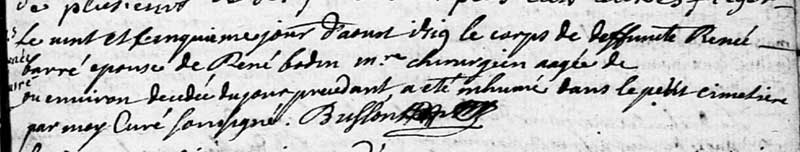 de plusieurs
Le vint et cinquieme jour d'aoust 1719 le corps de deffuncte Renée
barré epouse de René bodin m.re chirurgien aagée de
ou environ decedée du jour precedant a eté inhumé dans le petit cimetiere
par moy Curé soussigné. Busson